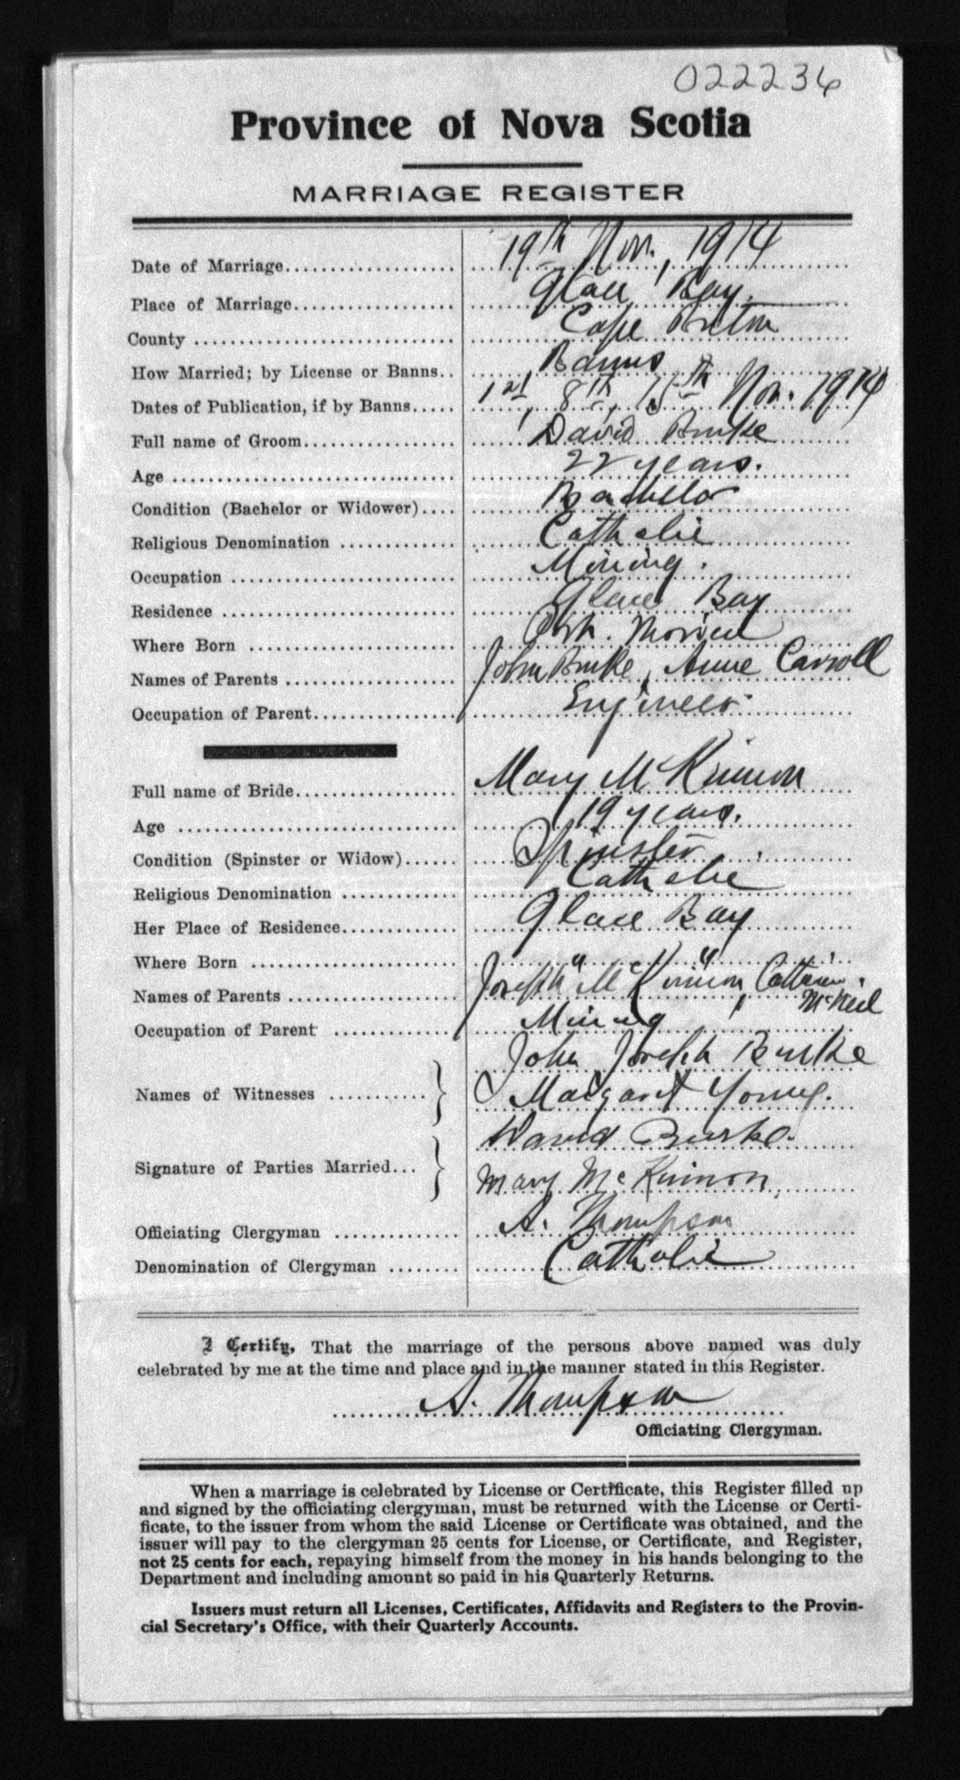 022236
Province of Nova Scotia
MARRIAGE REGISTER
Date of Marriage 19th Nov., 1914
Place of Marriage Glace Bay
County Cape Breton
How Married; by License or Banns Banns
Dates of Publication, if by Banns 1st, 8th, 15th Nov. 1914
Full name of Groom David Burke
Age 22 years.
Condition (Bachelor or Widower) Bachelor
Religious Denomination Catholic
Occupation Mining.
Residence Glace Bay
Where Born Port Morien
Names of Parents John Burke, Anne Carroll
Occupation of Parent Engineer
Full name of Bride Mary McKinnon
Age 19 years.
Condition (Spinster or Widow) Spinster
Religious Denomination Catholic
Her Place of Residence Glace Bay
Where Born " "
Names of Parents Joseph McKinnon, Catherine McNeil
Occupation of Parent Mining
Names of Witnesses John Joseph Burke
Margaret Young.
Signature of Parties Married David Burke.
Mary McKinnon
Officiating Clergyman A. Thompson
Denomination of Clergyman Catholic
I Certify, That the marriage of the persons above named was duly
celebrated by me at the time and place and in the manner stated in this Register.
A. Thompson
Officiating Clergyman.
When a marriage is celebrated by License or Certificate, this Register filled up
and signed by the officiating clergyman, must be returned with the License or Certi-
ficate, to the issuer from whom the said License or Certificate was obtained, and the
issuer will pay to the clergyman 25 cents for License, or Certificate, and Register,
not 25 cents for each, repaying himself from the money in his hands belonging to the
Department and including amount so paid in his Quarterly Returns.
Issuers must return all Licenses, Certificates, Affidavits and Registers to the Provin-
cial Secretary's Office, with their Quarterly Accounts.